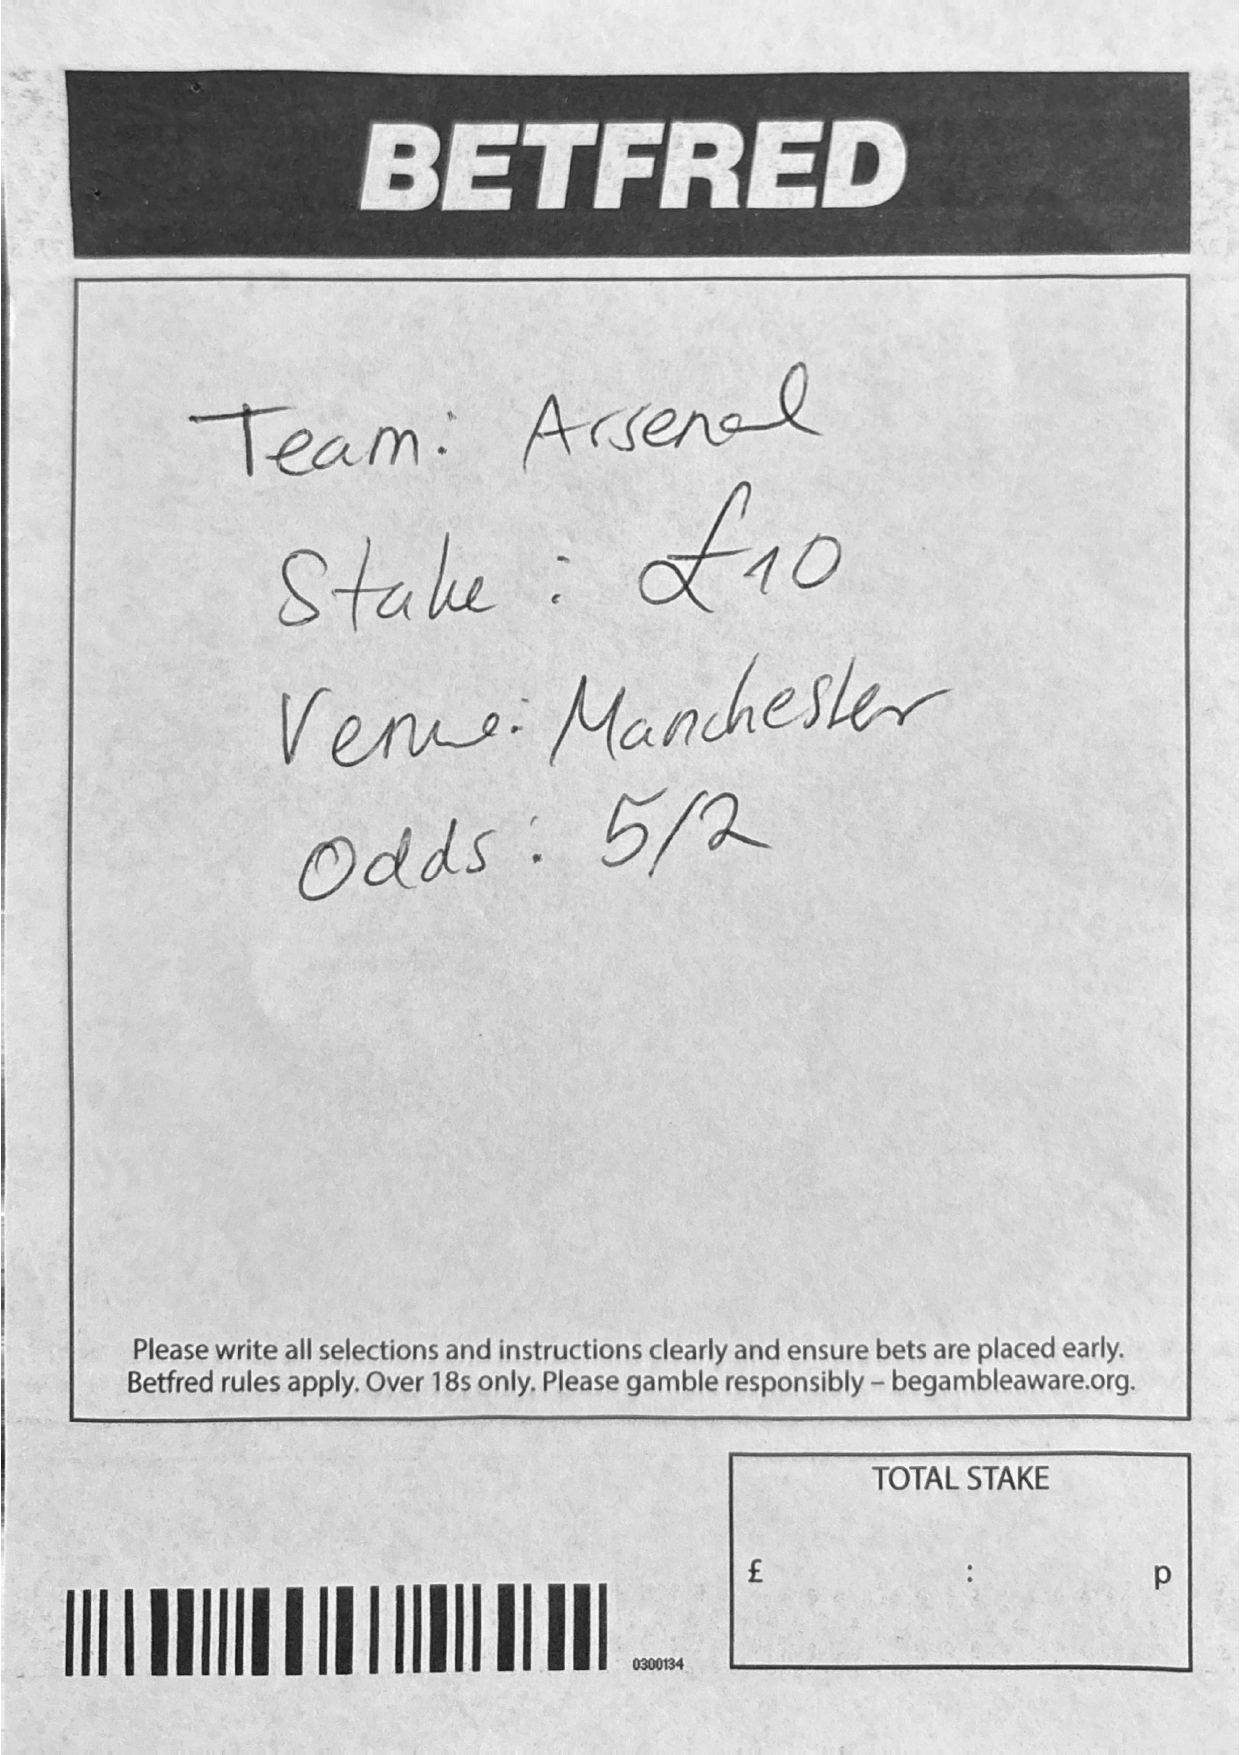 BETFRED
Team: Arsenal
Stake: £10
Venue: Manchester
Odds: 5/2
Please write all selections and instructions clearly and ensure bets are placed early.
Betfred rules apply. Over 18s only. Please gamble responsibly – begambleaware.org.
TOTAL STAKE
£ : p
0300134